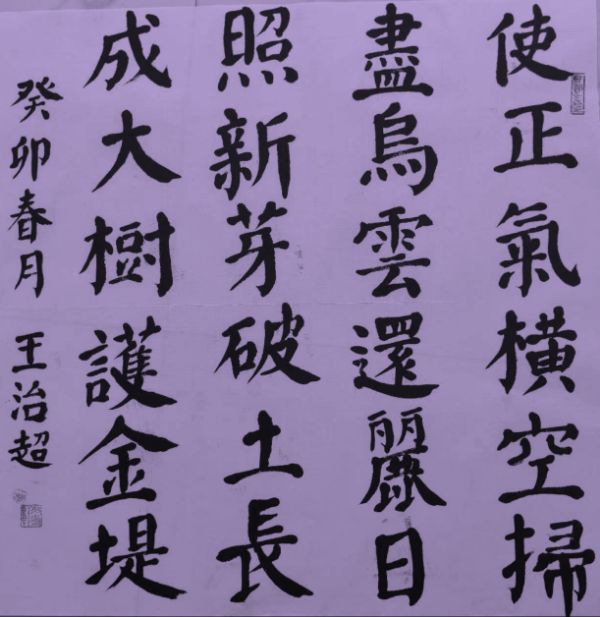 使正氣橫空掃
盡烏雲還麗日
照新芽破土長
成大樹護金堤
癸卯春月 王治超